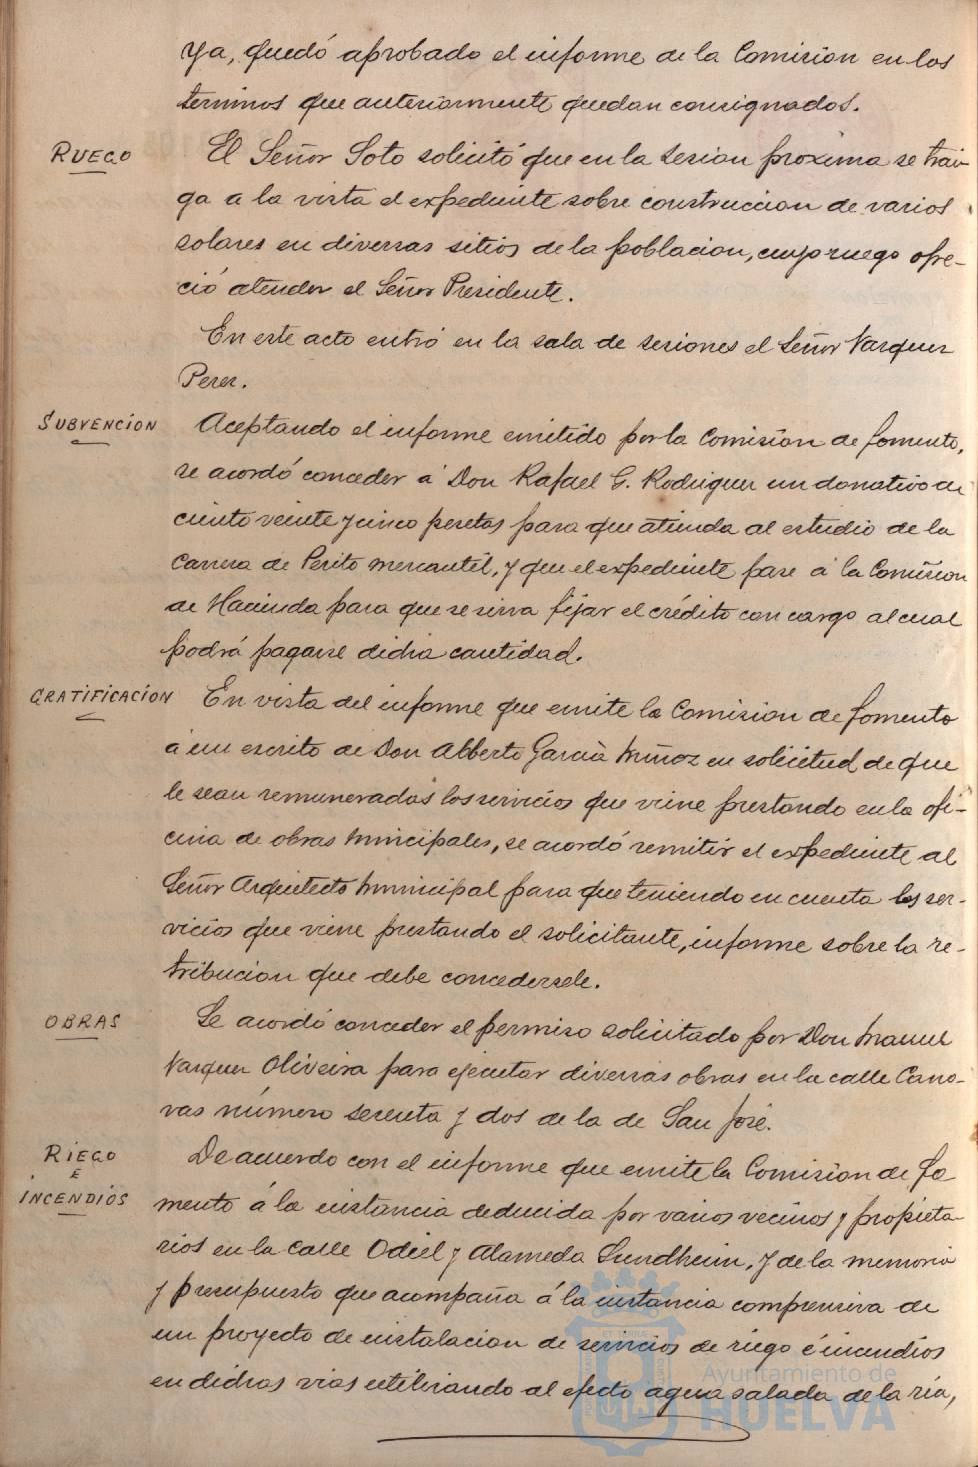 ya, quedó aprobado el informe de la Comision en los
terminos que anteriormente quedan consignados.
RUEGO
El Señor Soto solicitó que en la sesion proxima se trai-
ga a la vista el expediente sobre construccion de varios
solares en diversas sitios de la poblacion, cuyo ruego ofre-
ció atender el Señor Presidente.
En este acto entró en la sala de sesiones el Señor Vazquez
Perez.
SUBVENCION
Aceptando el informe emitido por la Comision de fomento,
se acordó conceder á Don Rafael G. Rodriguez un donativo de
ciento veinte y cinco pesetas para que atienda al estudio de la
carrera de Perito mercantil, y que el expediente pase á la Comision
de Hacienda para que se sirva fijar el crédito con cargo al cual
podrá pagarse dicha cantidad.
GRATIFICACION
En vista del informe que emite la Comision de fomento
á un escrito de Don Alberto García Muñoz en solicitud de que
le sean remunerados los servicios que viene prestando en la ofi-
cina de obras municipales, se acordó remitir el expediente al
Señor Arquitecto municipal para que teniendo en cuenta los ser-
vicios que viene prestando el solicitante, informe sobre la re-
tribucion que debe concedersele.
OBRAS
Se acordó conceder el permiso solicitado por Don Manuel
Vazquez Oliveira para ejecutar diversas obras en la calle Cano-
vas número setenta y dos de la de San José.
RIEGO
E
INCENDIOS
De acuerdo con el informe que emite la Comision de fo
mento á la instancia deducida por varios vecinos y propieta-
rios en la calle Odiel y Alameda Sundheim, y de la memoria
y presupuesto que acompaña á la instancia comprensiva de
un proyecto de instalacion de servicios de riego é incendios
en dichas vias utilizando al efecto agua salada de la ría,
Ayuntamiento de
HUELVA